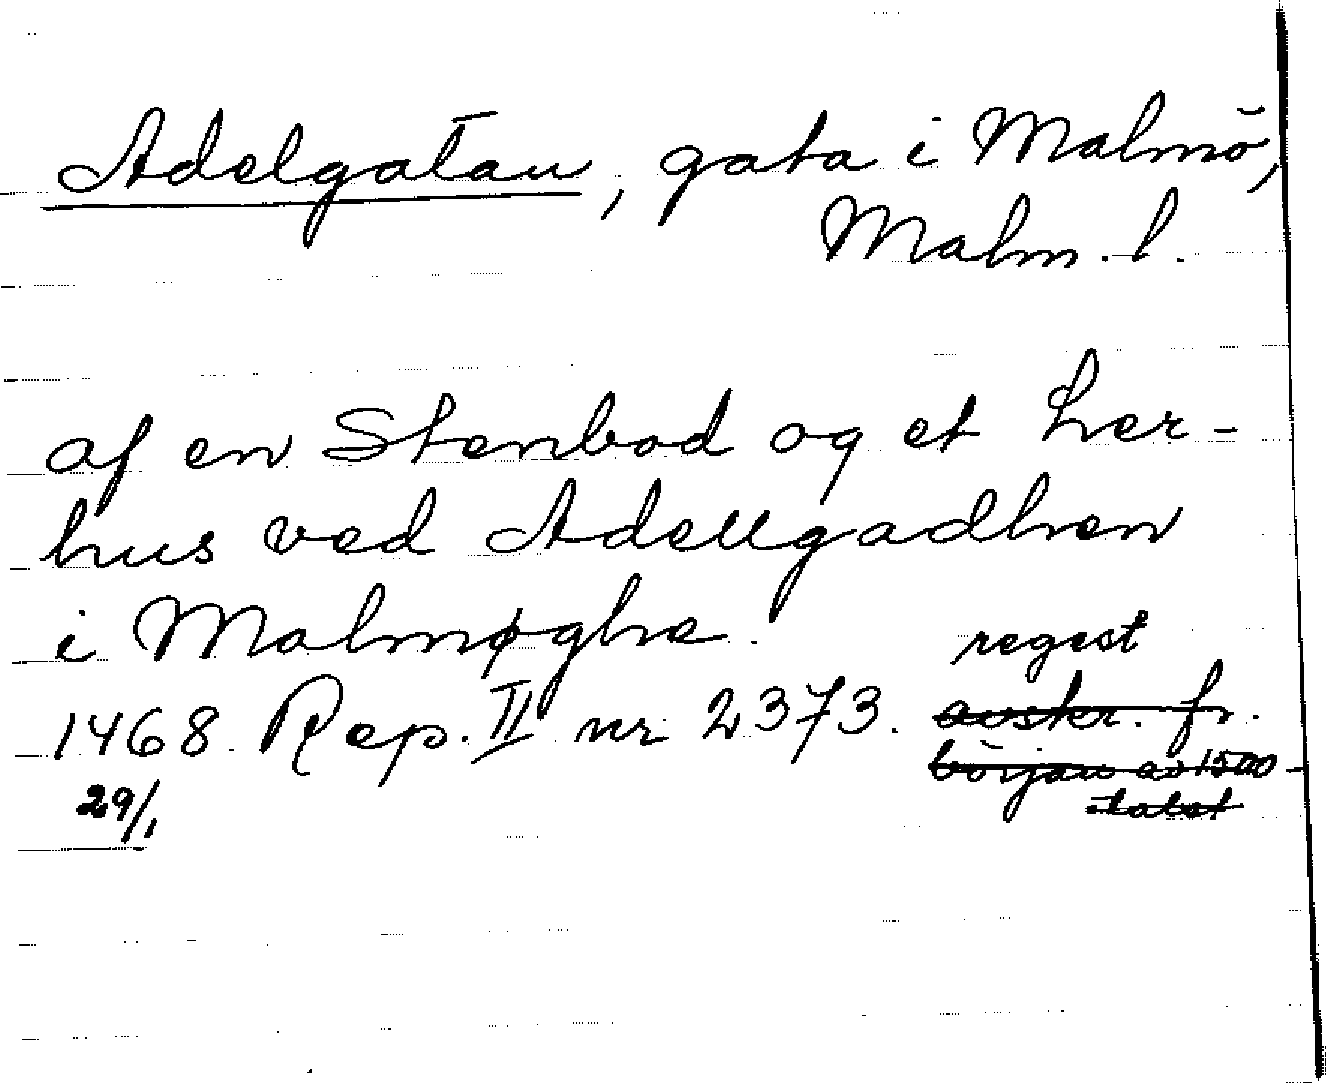 Adelgatan, gata i Malmö,
Malm. l.
af en Stenbod og et her-
hus ved Adellgadhen
i Malmøghe.
regest
1468 Rep. II nr 2373. avskr. fr.
29/1 början av 1500
talet